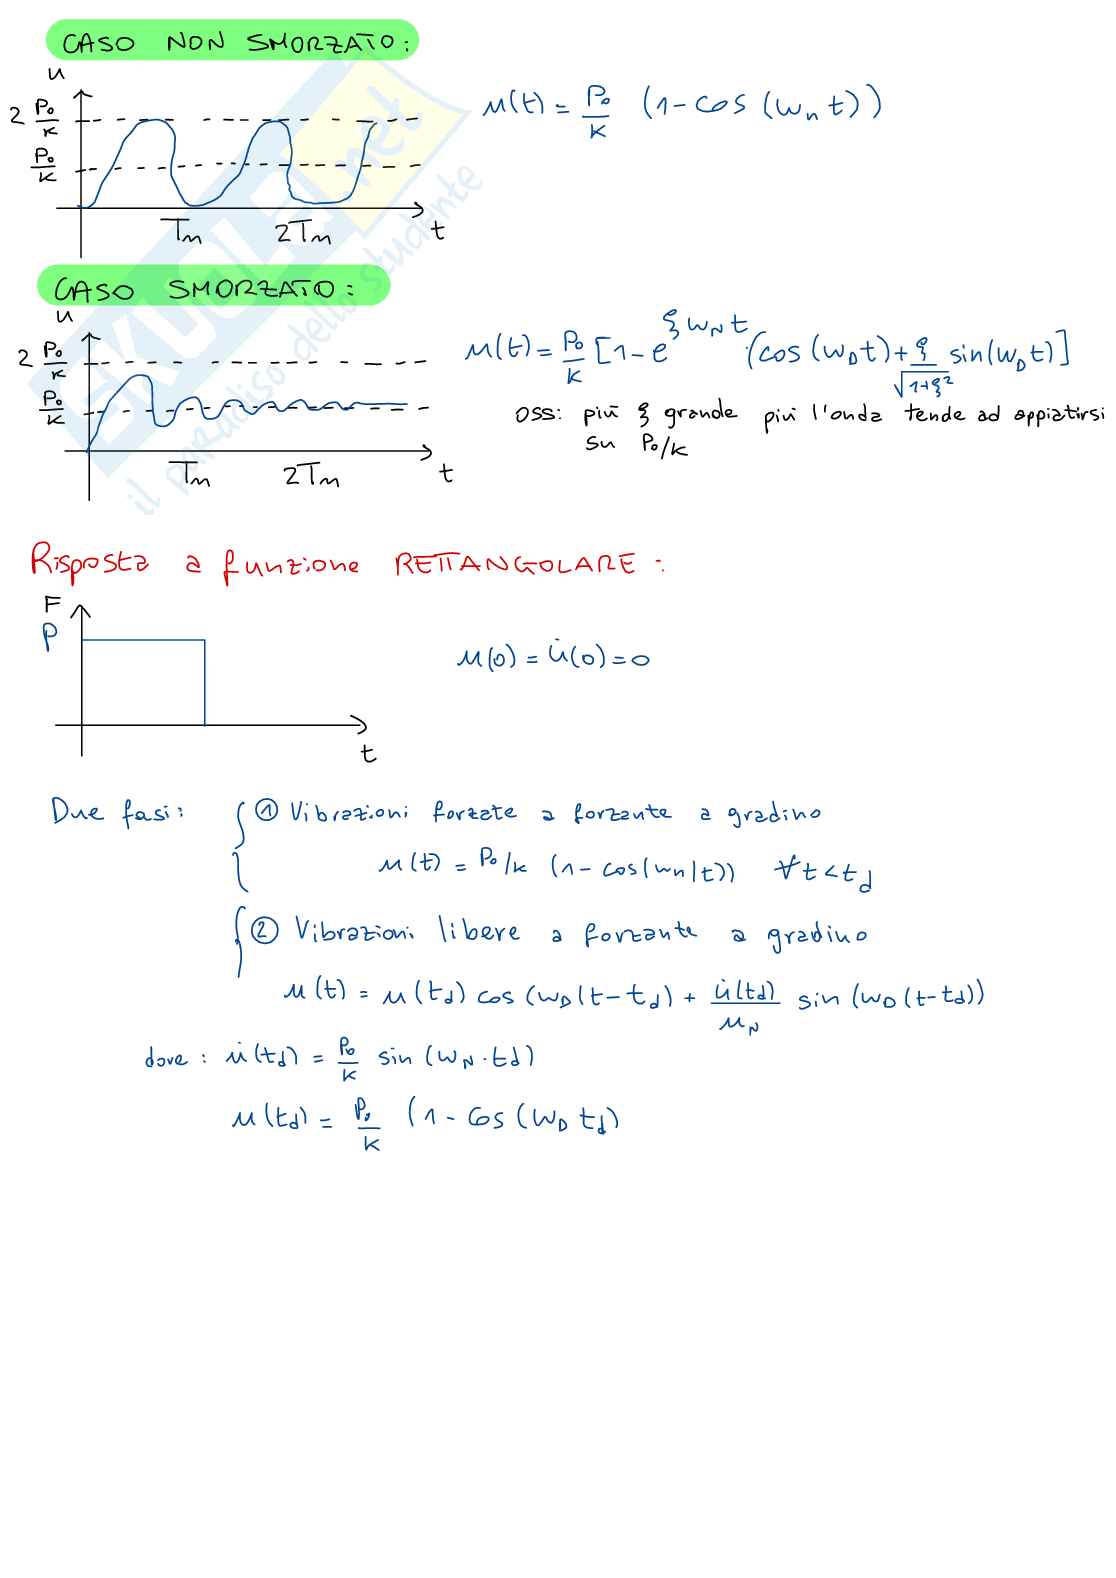 CASO NON SMORZATO:
u
2 P₀/k
P₀/k
Tn 2Tn t
u(t) = P₀/k (1 - cos (wn t))
CASO SMORZATO:
u
2 P₀/k
P₀/k
Tn 2Tn t
u(t) = P₀/k [1 - e^{ξ wN t} · (cos (wD t) + ξ/√(1+ξ²) sin(wD t)]
OSS: più ξ grande più l'onda tende ad appiatirsi
su P₀/k
Risposta a funzione RETTANGOLARE:
F
P
t
u(0) = u̇(0) = 0
Due fasi: { ① Vibrazioni forzate a forzante a gradino
u(t) = P₀/k (1 - cos(wn|t)) ∀t < td
{ ② Vibrazioni libere a forzante a gradino
u(t) = u(td) cos (wD(t - td) + u̇(td)/uN sin (wD(t - td))
dove: u̇(td) = P₀/k sin (wN · td)
u(td) = P₀/k (1 - cos (wD td)
SKUOLA.net
il paradiso dello studente